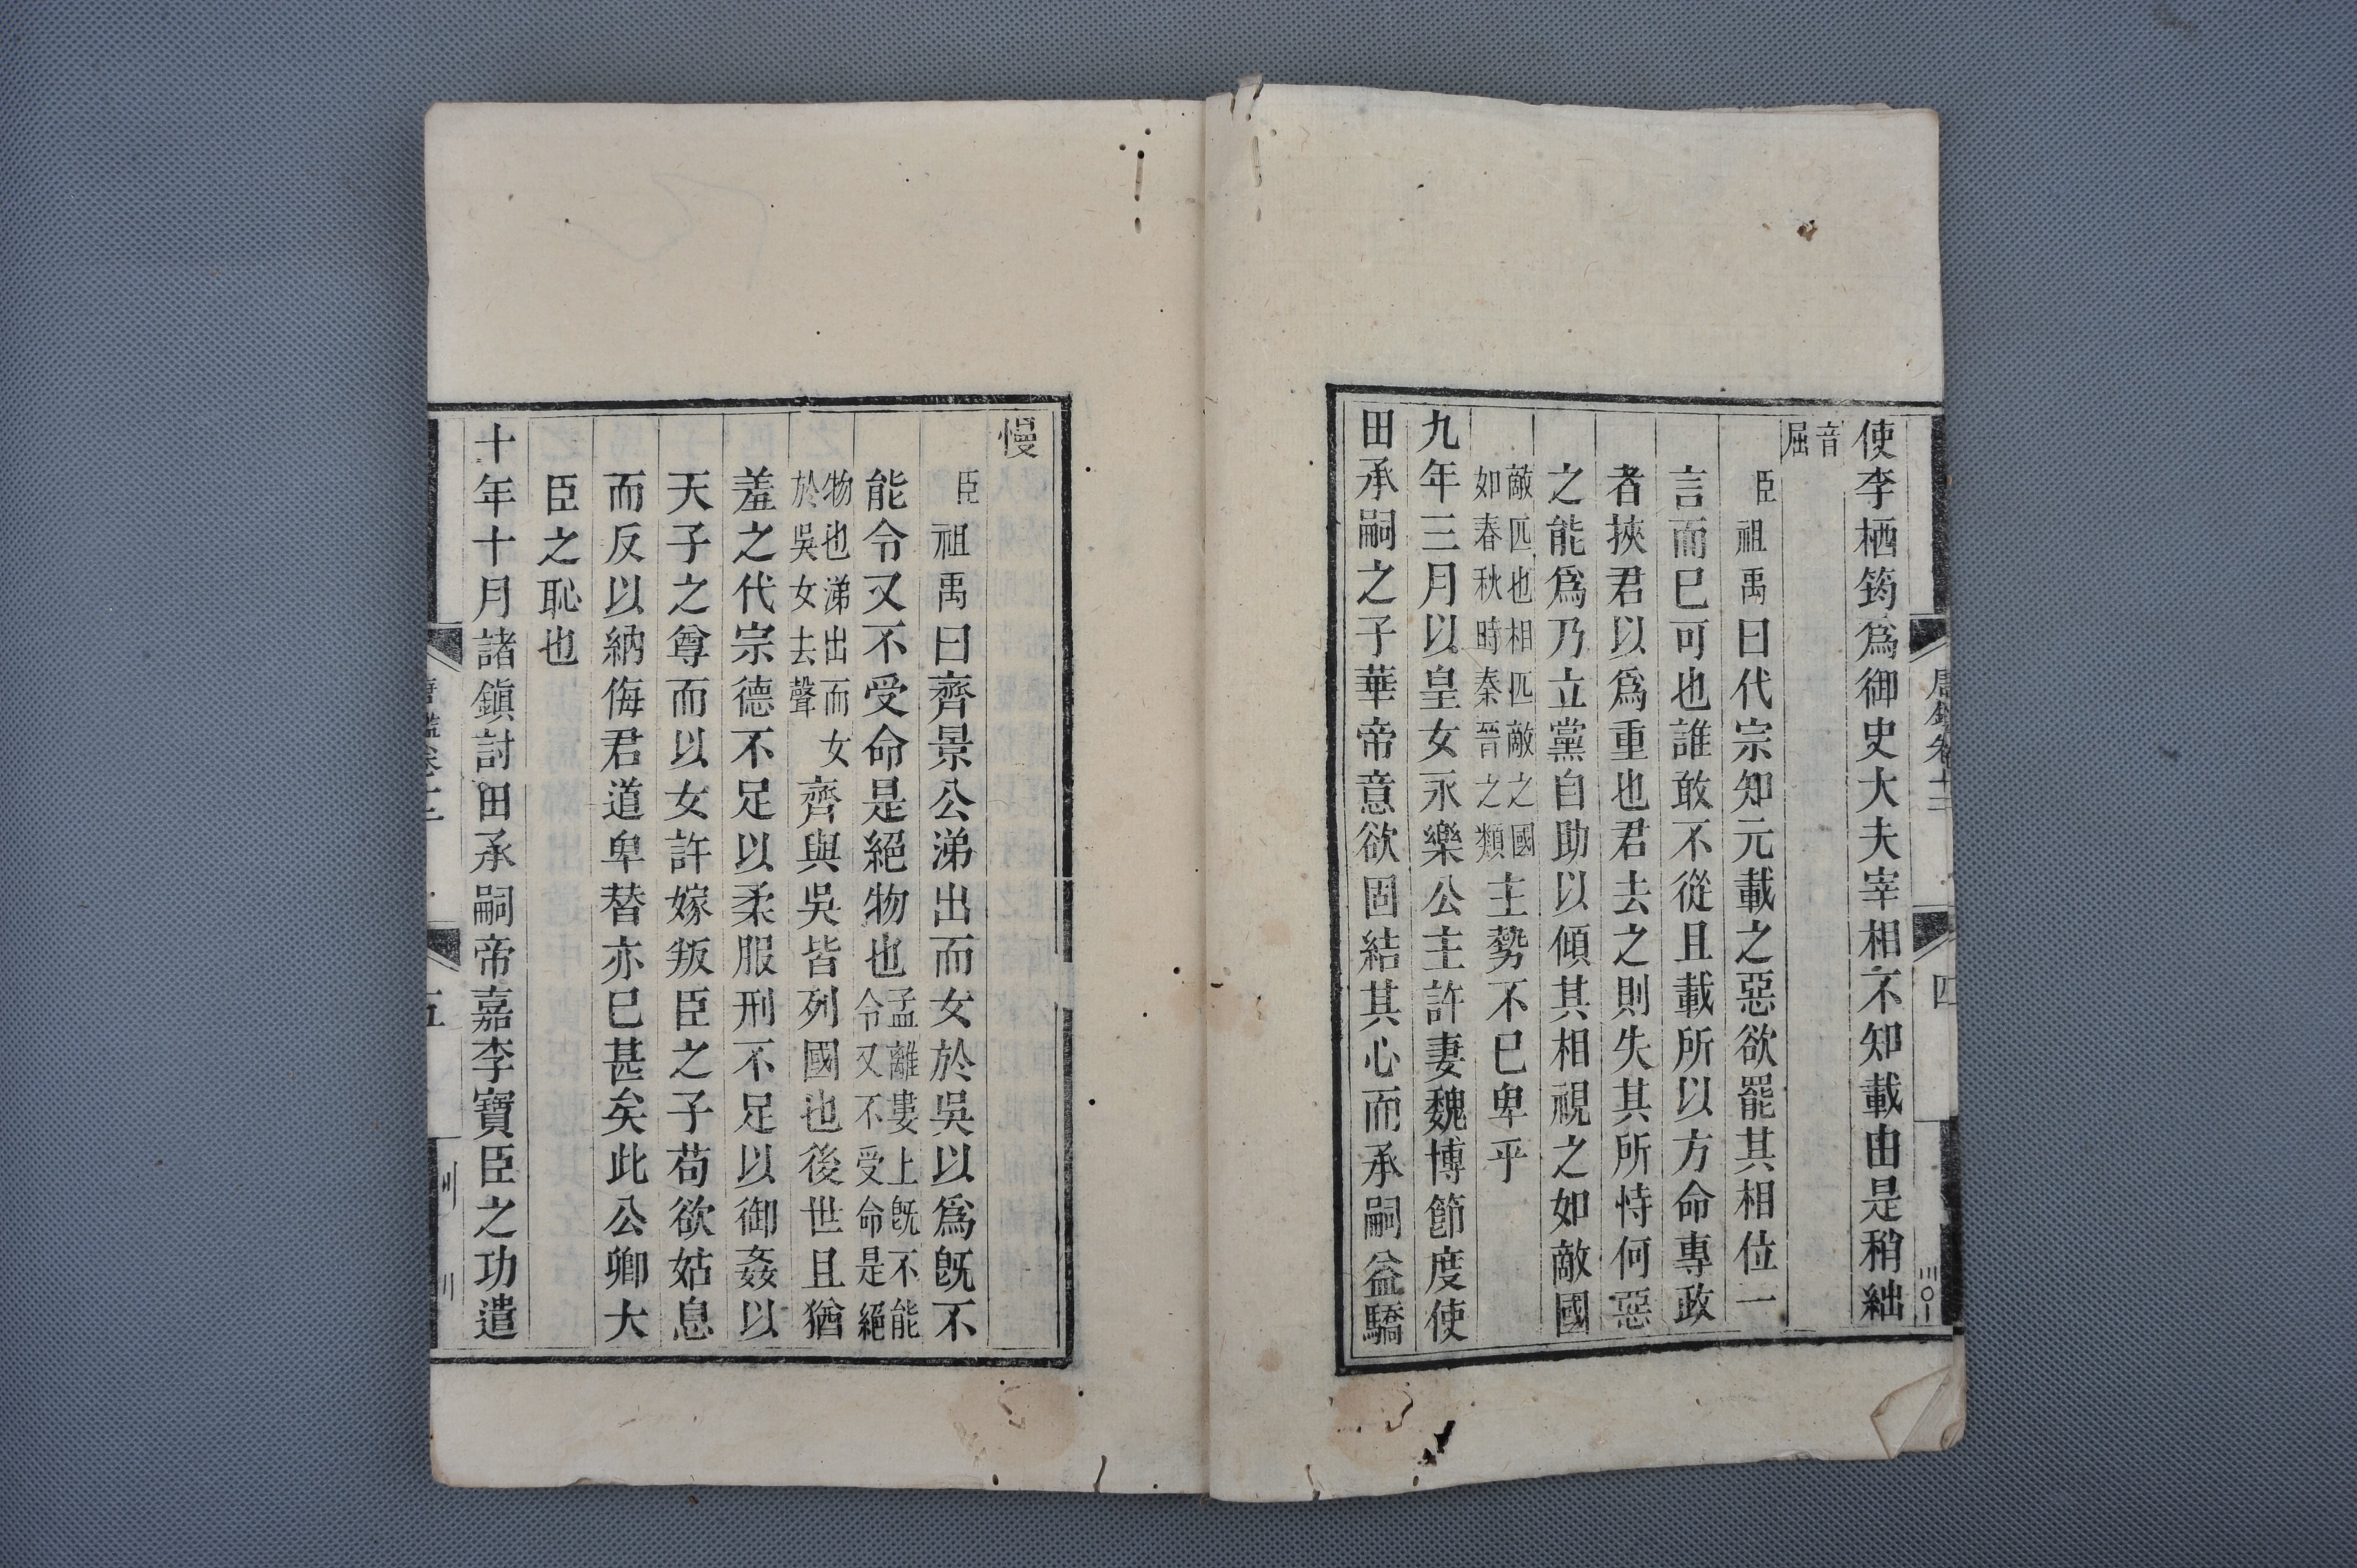 使李栖筠爲御史大夫宰相不知載由是稍絀
音
屈
臣祖禹曰代宗知元載之惡欲罷其相位一
言而已可也誰敢不從且載所以方命專政
者挾君以爲重也君去之則失其所恃何惡
之能爲乃立黨自助以傾其相視之如敵國
敵匹也相匹敵之國
如春秋時秦晉之類
主勢不已卑乎
九年三月以皇女永樂公主許妻魏博節度使
田承嗣之子華帝意欲固結其心而承嗣益驕
慢
臣祖禹曰齊景公涕出而女於吳以爲旣不
能令又不受命是絕物也
孟離婁上旣不能
令又不受命是絕
物也涕出而女
於吳女去聲
齊與吳皆列國也後世且猶
羞之代宗德不足以柔服刑不足以御姦以
天子之尊而以女許嫁叛臣之子苟欲姑息
而反以納侮君道卑替亦已甚矣此公卿大
臣之恥也
十年十月諸鎭討田承嗣帝嘉李寶臣之功遣
唐鑑卷十二
四
五